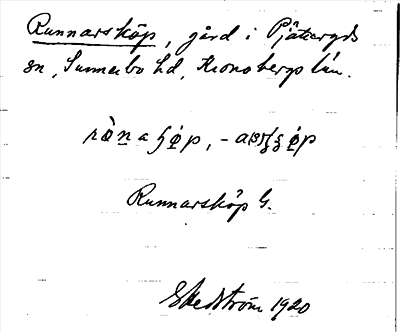 Runnarsköp, gård i Pjätteryds
sn, Sunnerbo hd, Kronobergs län.
Runnarsköp G.
Hedström 1920